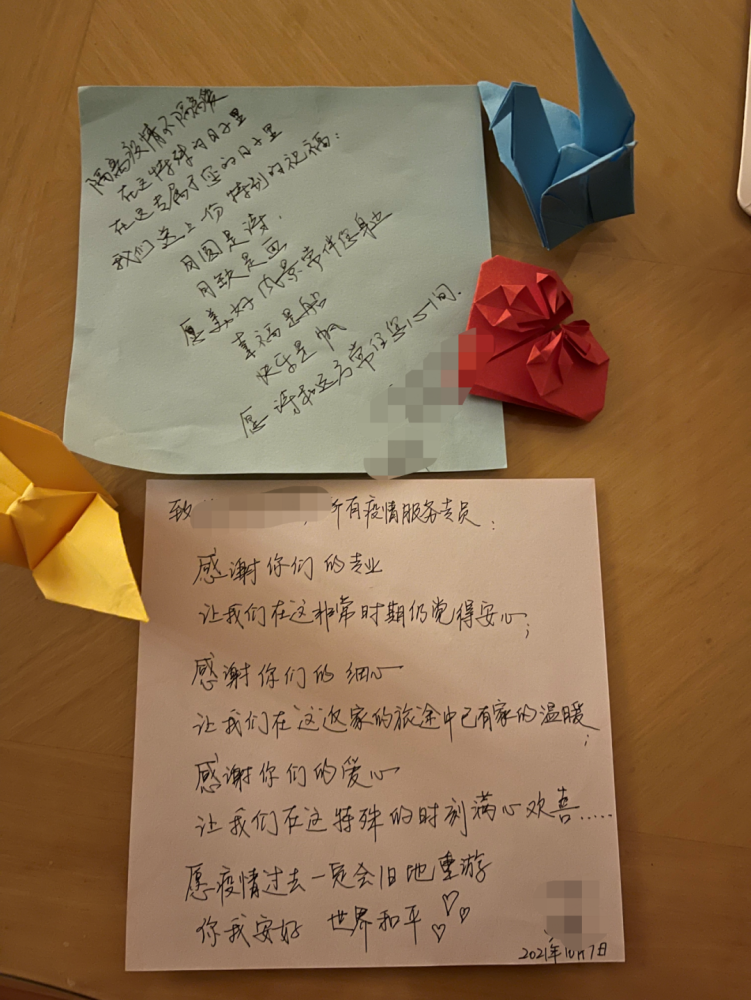 隔离疫情不隔离爱
在这特殊的日子里
在这专属于您的日子里
我们送上份特别的祝福:
月圆是诗.
月缺是画
愿美好风景常伴您身边
幸福是船
快乐是帆
愿诗和远方常住您心间.
致
所有疫情服务专员:
感谢你们的专业
让我们在这非常时期仍觉得安心;
感谢你们的细心
让我们在这返家的旅途中已有家的温暖;
感谢你们的爱心
让我们在这特殊的时刻满心欢喜.....
愿疫情过去一定会旧地重游
你我安好 世界和平
2021年10月7日